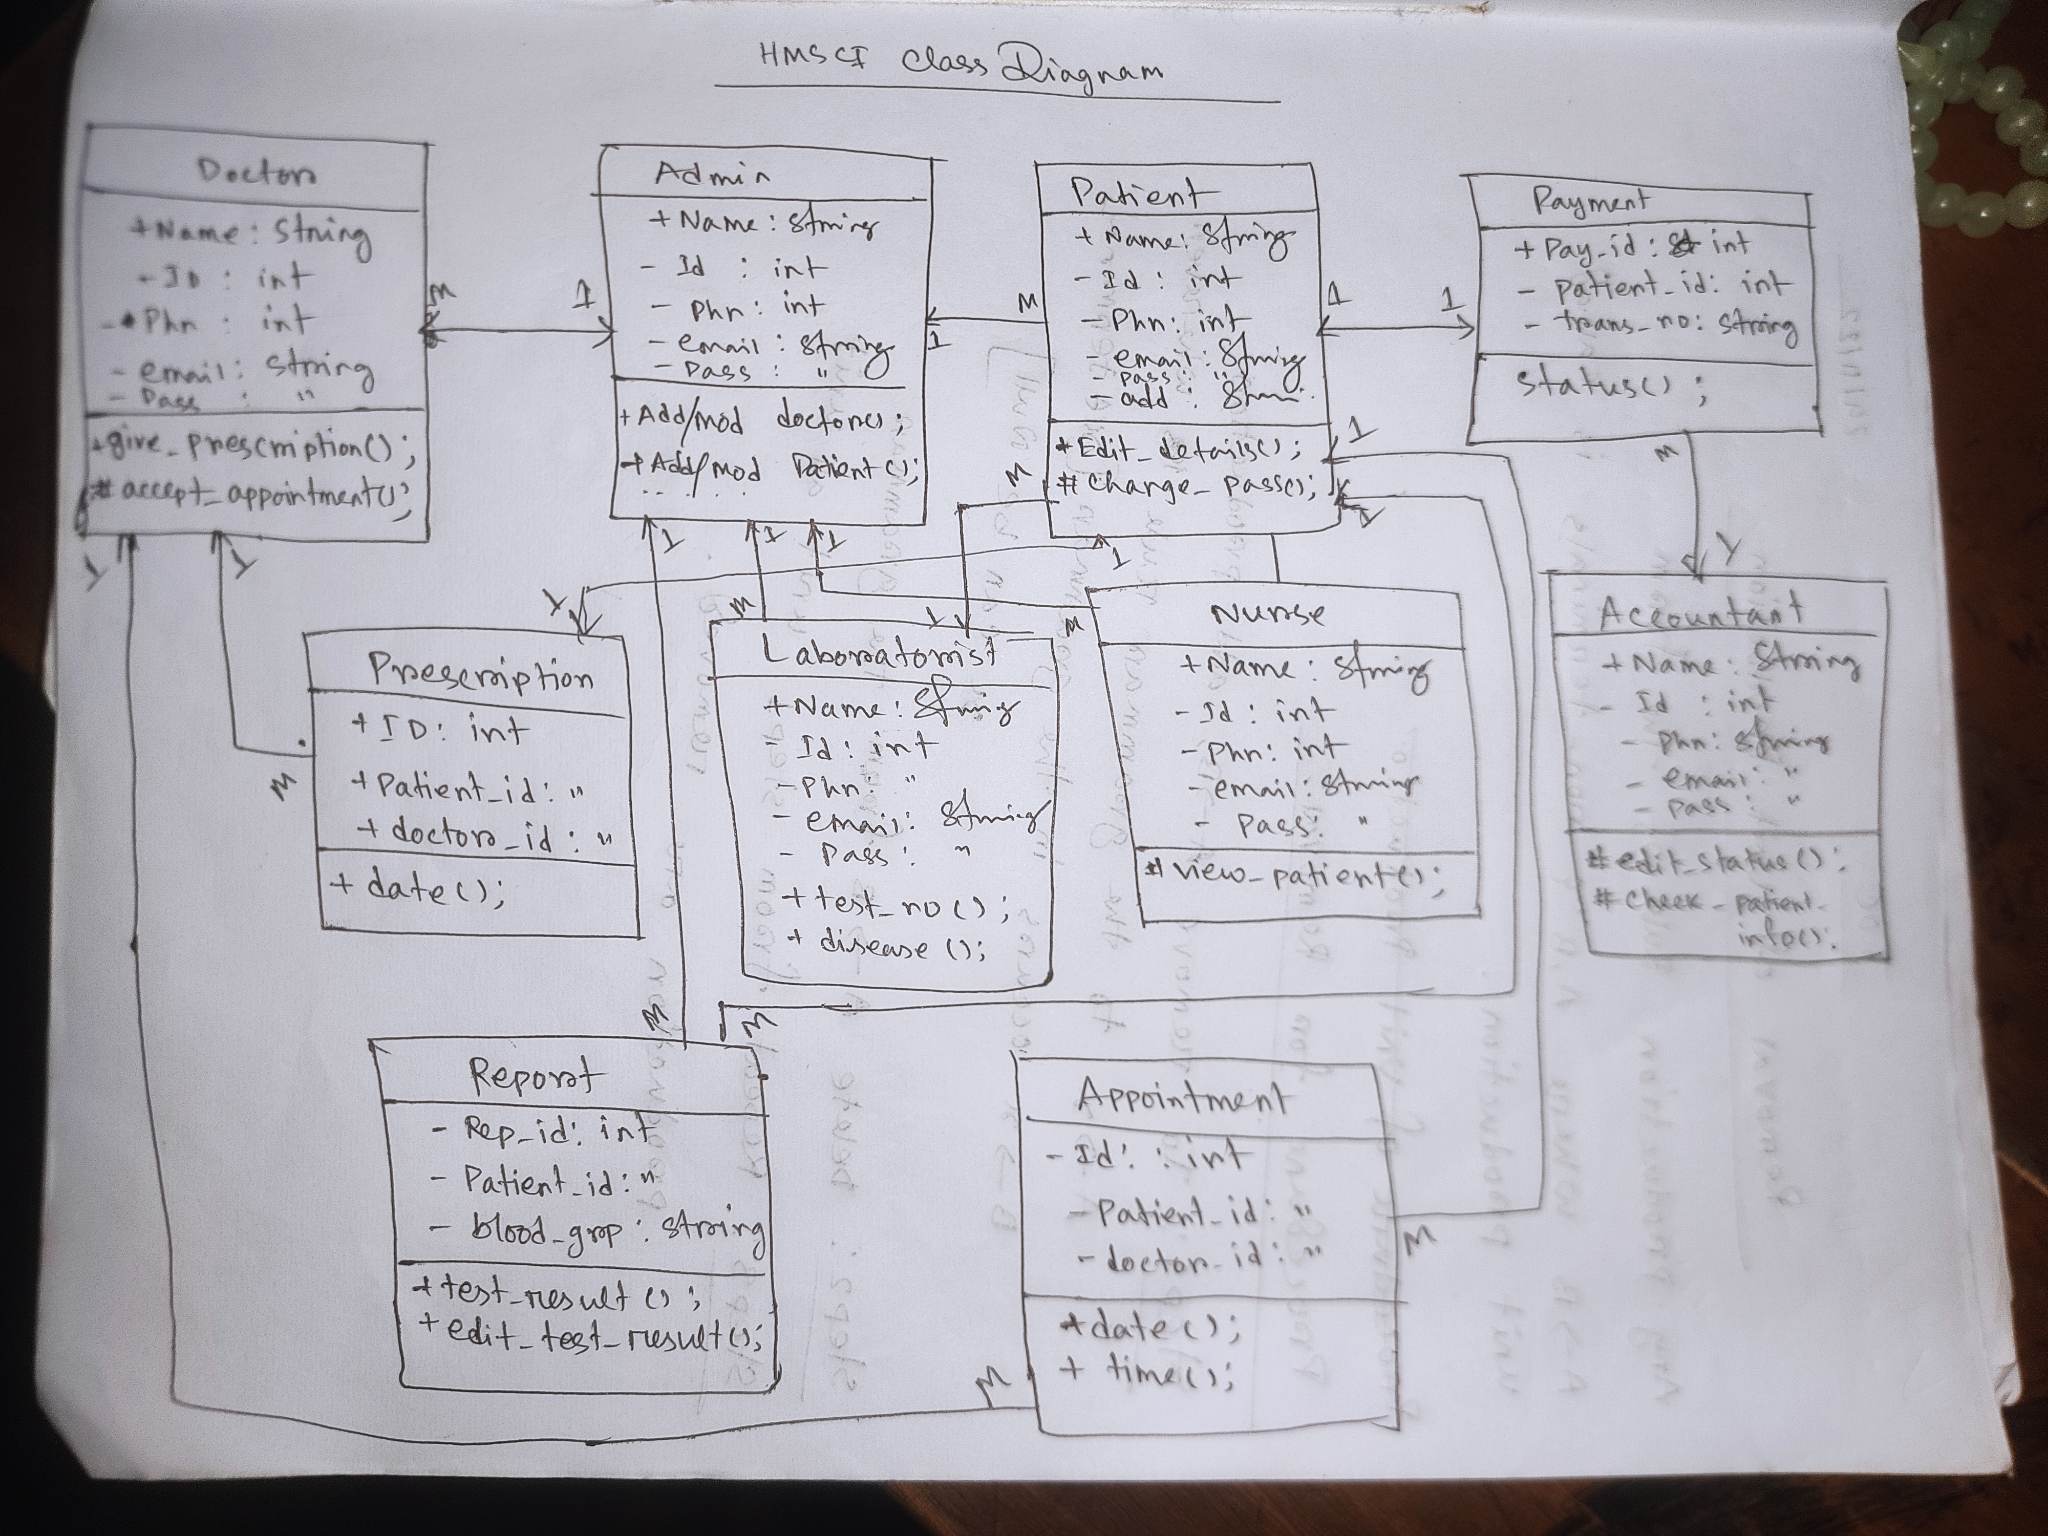 HMSCI Class Diagram
Doctor
+Name: String
- ID : int
- Phn : int
- email: string
- Pass : "
+give_prescription();
# accept_appointment();
M
1
Admin
+ Name: String
- Id : int
- Phn: int
- email: String
- Pass : "
+ Add/mod doctor();
+ Add/mod Patient();
......
1
M
Patient
+ Name: String
- Id : int
- Phn: int
- email: String
- pass: "
- add :
+ Edit_details();
# change_pass();
1
1
Payment
+ Pay_id: int
- patient_id: int
- trans_no: string
status();
1
M
1
1
1
1
1
M
1
1
1
M
1
1
M
M
Prescription
+ ID: int
+ Patient_id: "
+ doctor_id: "
+ date();
M
Laboratorist
+Name: String
- Id: int
- Phn: "
- email: String
- Pass: "
+ test_no();
+ disease();
Nurse
+ Name: String
- Id: int
- Phn: int
- email: String
- Pass: "
# view_patient();
Accountant
+ Name: String
- Id : int
- Phn: String
- email: "
- Pass: "
# edit_status();
# check_patient_
info();
M
M
Report
- Rep_id: int
- Patient_id: "
- blood_grp: string
+ test_result();
+ edit_test_result();
Appointment
- Id: : int
- Patient_id: "
- doctor_id: "
+date();
+ time();
M
M